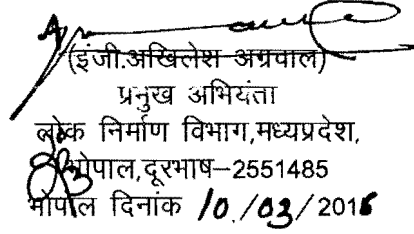 (इंजी.अखिलेश अग्रवाल)
प्रमुख अभियंता
लोक निर्माण विभाग,मध्यप्रदेश,
भोपाल,दूरभाष–2551485
भोपाल दिनांक 10/03/2016